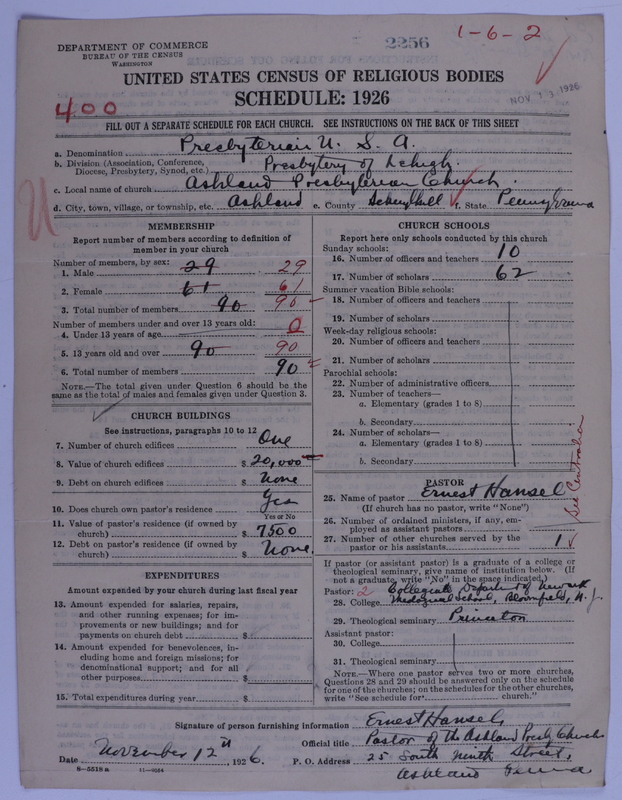 2256
1-6-2
DEPARTMENT OF COMMERCE
BUREAU OF THE CENSUS
WASHINGTON
UNITED STATES CENSUS OF RELIGIOUS BODIES
SCHEDULE: 1926
NOV 13 1926
400
FILL OUT A SEPARATE SCHEDULE FOR EACH CHURCH. SEE INSTRUCTIONS ON THE BACK OF THIS SHEET
a. Denomination Presbyterian U. S. A.
b. Division (Association, Conference, Diocese, Presbytery, Synod, etc.) Presbytery of Lehigh.
c. Local name of church Ashland Presbyterian Church.
d. City, town, village, or township, etc. Ashland e. County Schuylkill f. State Pennsylvania
MEMBERSHIP
Report number of members according to definition of
member in your church
Number of members, by sex:
1. Male 29 29
2. Female 61 61
3. Total number of members 90 90
Number of members under and over 13 years old:
4. Under 13 years of age 0
5. 13 years old and over 90 90
6. Total number of members 90
NOTE.—The total given under Question 6 should be the
same as the total of males and females given under Question 3.
CHURCH BUILDINGS
See instructions, paragraphs 10 to 12
7. Number of church edifices One
8. Value of church edifices $ 20,000
9. Debt on church edifices $ None
10. Does church own pastor's residence? Yes
Yes or No
11. Value of pastor's residence (if owned by
church) $ 7500
12. Debt on pastor's residence (if owned by
church) $ None.
EXPENDITURES
Amount expended by your church during last fiscal year
13. Amount expended for salaries, repairs,
and other running expenses; for im-
provements or new buildings; and for
payments on church debt $
14. Amount expended for benevolences, in-
cluding home and foreign missions; for
denominational support; and for all
other purposes $
15. Total expenditures during year $
CHURCH SCHOOLS
Report here only schools conducted by this church
Sunday schools:
16. Number of officers and teachers 10
17. Number of scholars 62
Summer vacation Bible schools:
18. Number of officers and teachers
19. Number of scholars
Week-day religious schools:
20. Number of officers and teachers
21. Number of scholars
Parochial schools:
22. Number of administrative officers
23. Number of teachers—
a. Elementary (grades 1 to 8)
b. Secondary
24. Number of scholars—
a. Elementary (grades 1 to 8)
b. Secondary
See Centralia
PASTOR
25. Name of pastor Ernest Hansel
(If church has no pastor, write "None")
26. Number of ordained ministers, if any, em-
ployed as assistant pastors
27. Number of other churches served by the
pastor or his assistants 1
If pastor (or assistant pastor) is a graduate of a college or
theological seminary, give name of institution below. (If
not a graduate, write "No" in the space indicated.)
Pastor: 2 Collegiate Department of Newark
28. College Theological School, Bloomfield, N. J.
29. Theological seminary Princeton
Assistant pastor:
30. College
31. Theological seminary
NOTE.—Where one pastor serves two or more churches,
Questions 28 and 29 should be answered only on the schedule
for one of the churches; on the schedules for the other churches,
write "See schedule for church."
Signature of person furnishing information Ernest Hansel,
Official title Pastor of the Ashland Presby. Church
Date November 12th 1926. P. O. Address 25 South Ninth Street,
Ashland Penna
8-5518 a 11-9064